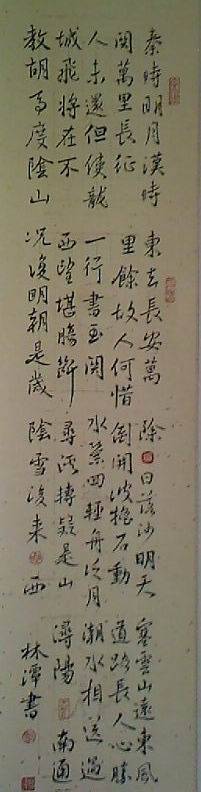 秦時明月漢時
関萬里長征
人未還但使龍
城飛將在不
教胡馬度陰山
東去長安萬
里餘故人何惜
一行書玉関
西望堪腸斷
況復明朝是歲
除日落沙明天
倒開波搖石動
水縈回輕舟泛月
尋溪轉疑是山
陰雪後來西
塞雲山遠東風
道路長人心勝
潮水相送過
潯陽南通
林潭書